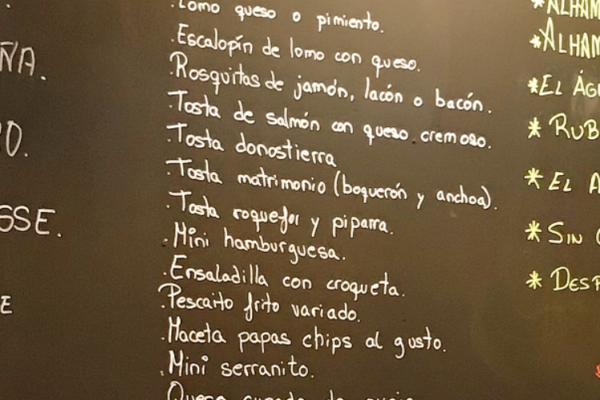 ÑA.
O.
SSE.
E
.Lomo queso o pimiento.
.Escalopín de lomo con queso.
.Rosquitas de jamón, lacón o bacón.
.Tosta de salmón con queso cremoso.
.Tosta donostierra
.Tosta matrimonio (boquerón y anchoa).
.Tosta roquefor y piparra.
.Mini hamburguesa.
.Ensaladilla con croqueta.
.Pescaito frito variado.
.Maceta papas chips al gusto.
.Mini serranito.
*ALHAM
*ALHAM
*EL ÁGU
*RUB
*EL A
*SIN
*DESP